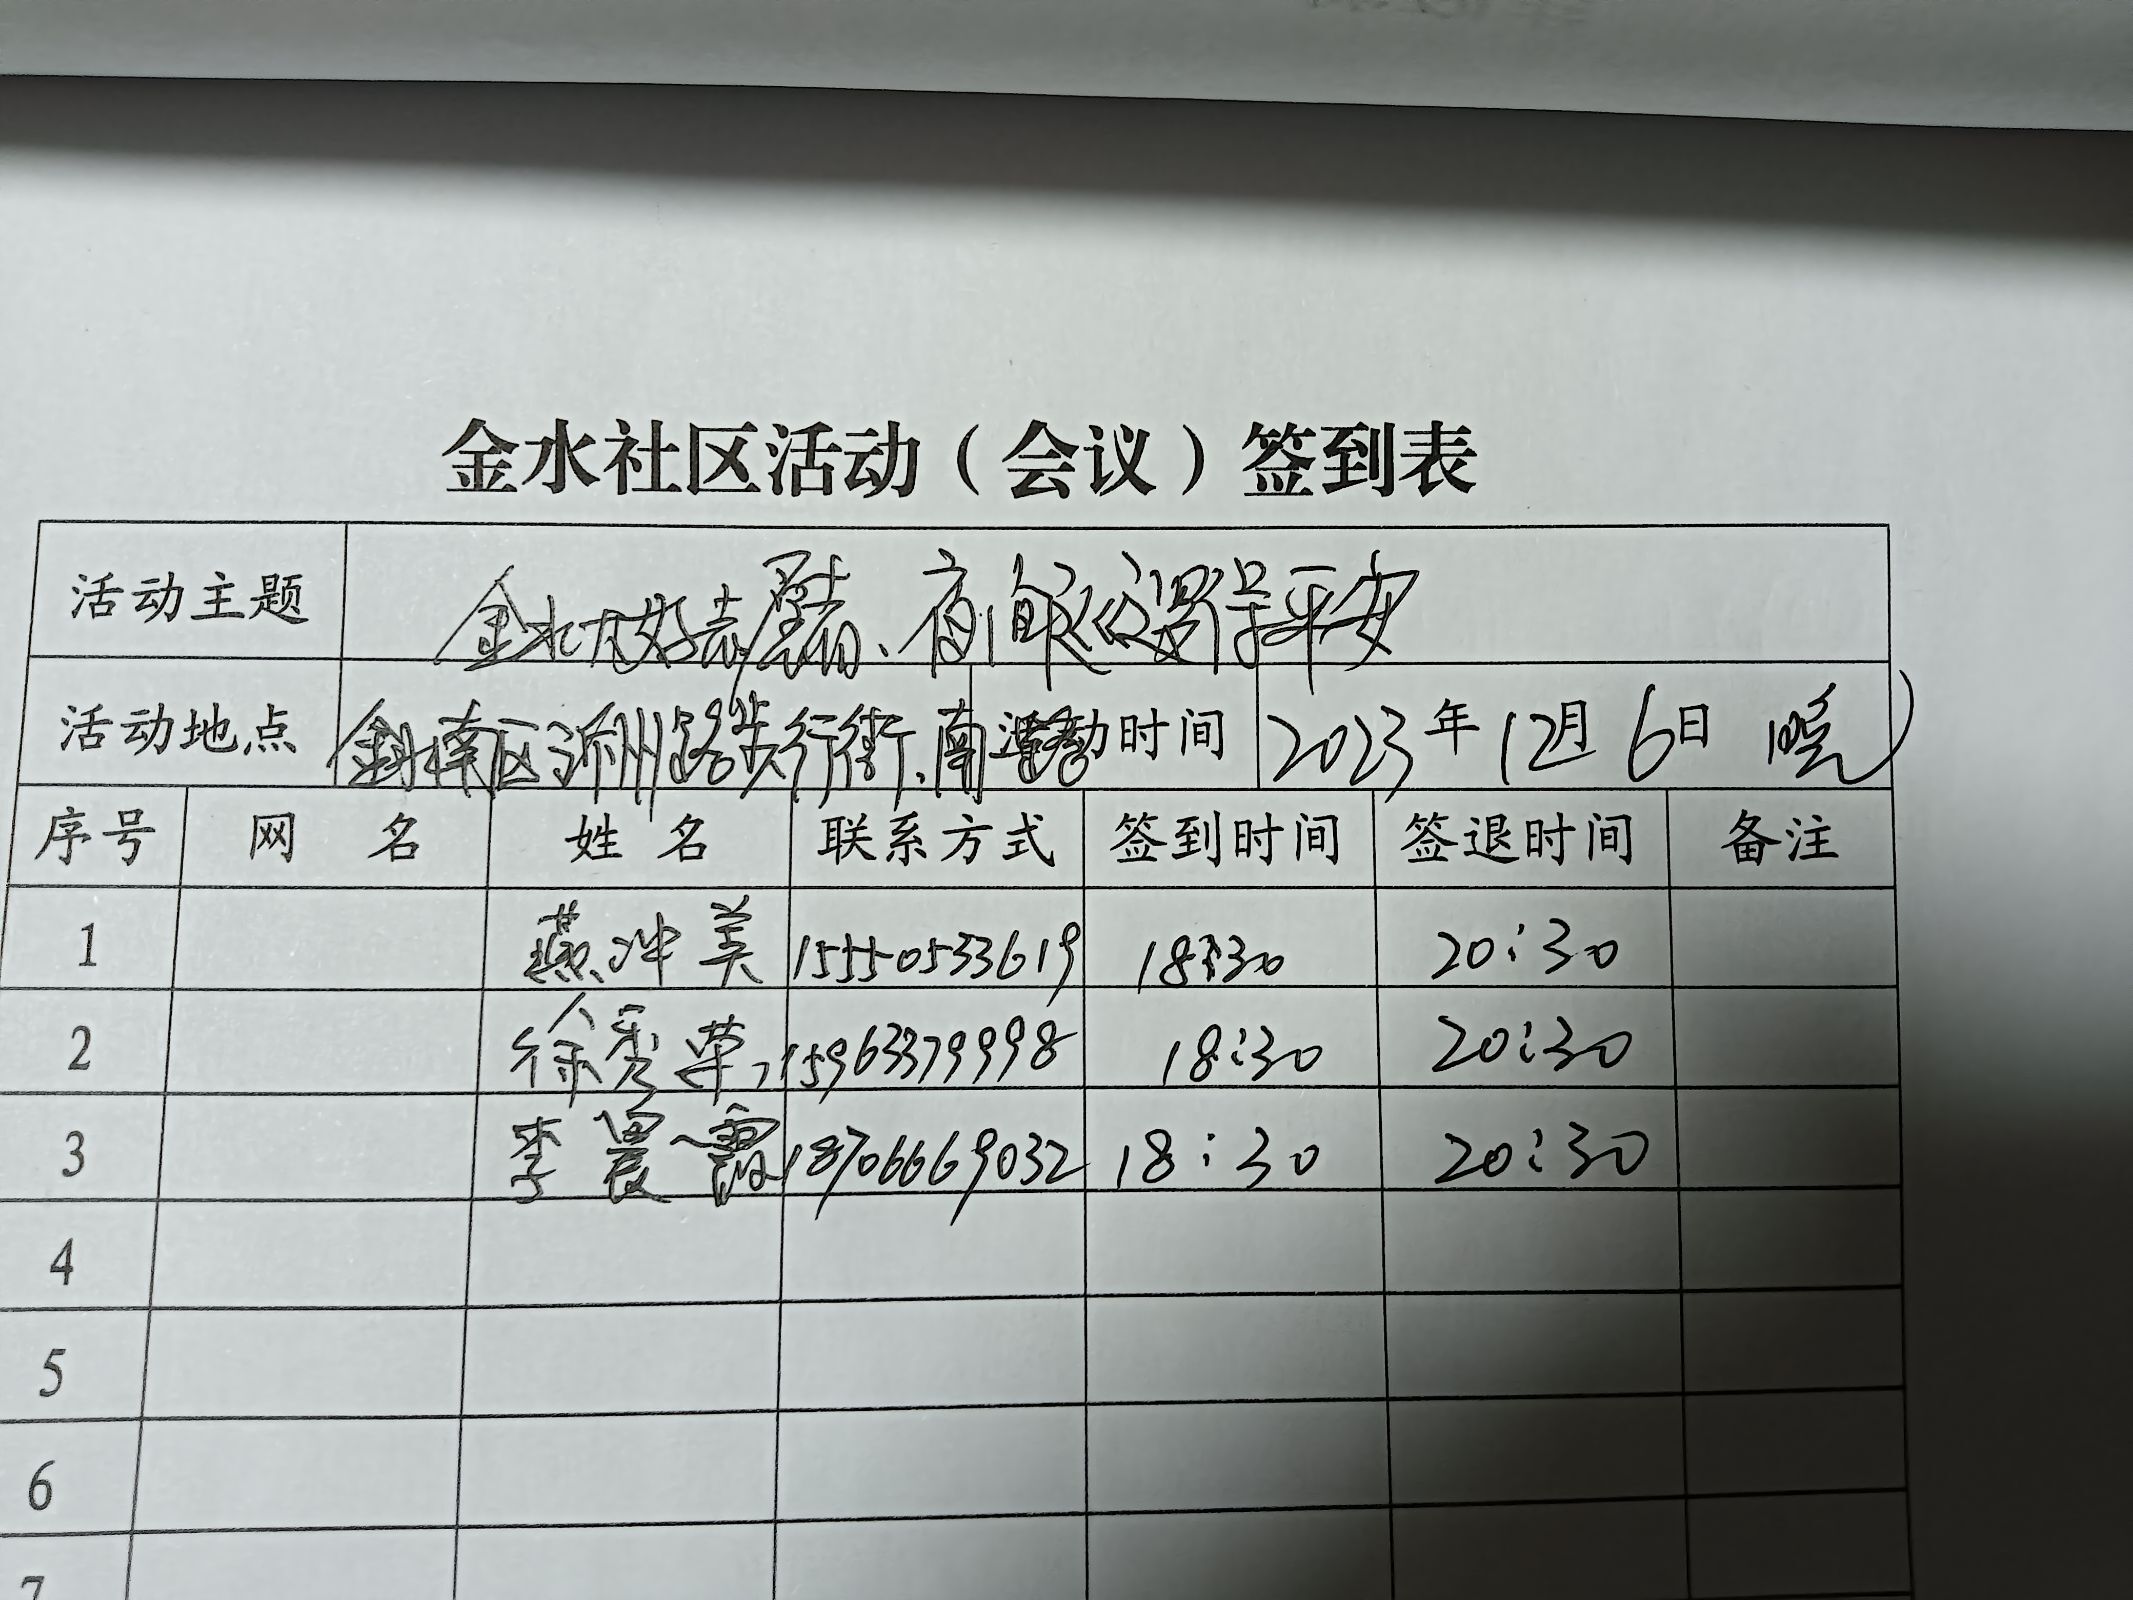 金水社区活动（会议）签到表
活动主题 金水 夜间 平安
活动地点 南区沂州路步行街、南 活动时间 2023年12月6日 晚
序号 网名 姓名 联系方式 签到时间 签退时间 备注
1 燕冲美 15550533619 18:30 20:30
2 徐秀荣 15963379998 18:30 20:30
3 李晨霞 18706669032 18:30 20:30
4
5
6
7